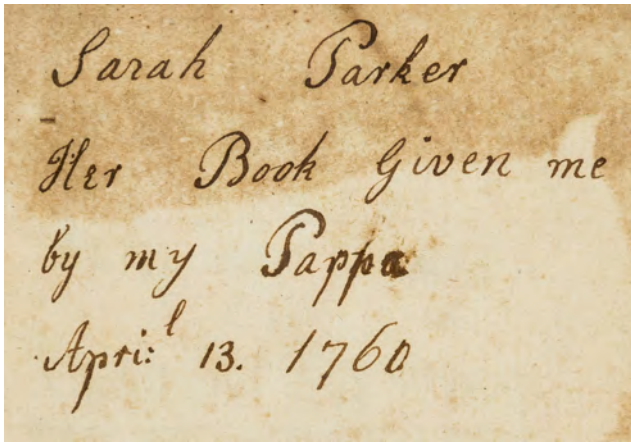 Sarah Parker
Her Book Given me
by my Pappa
Apri:l 13. 1760